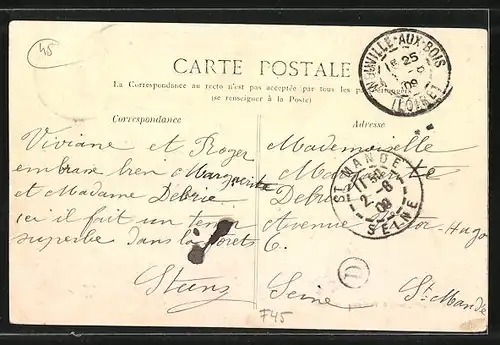 45
CARTE POSTALE
La Correspondance au recto n'est pas acceptée par tous les pays étrangers
(se renseigner à la Poste)
NEUVILLE-AUX-BOIS
15 25
09
(LOIRET)
Correspondance
Viviane et Roger
embrasse bien Marguerite
et Madame Debrie
ici il fait un temps
superbe dans la forets
Adresse
Mademoiselle
Debrie
Avenue Hugo
6.
Seine St Mandé
ST MANDÉ
2 - 8
09
SEINE
D
F45